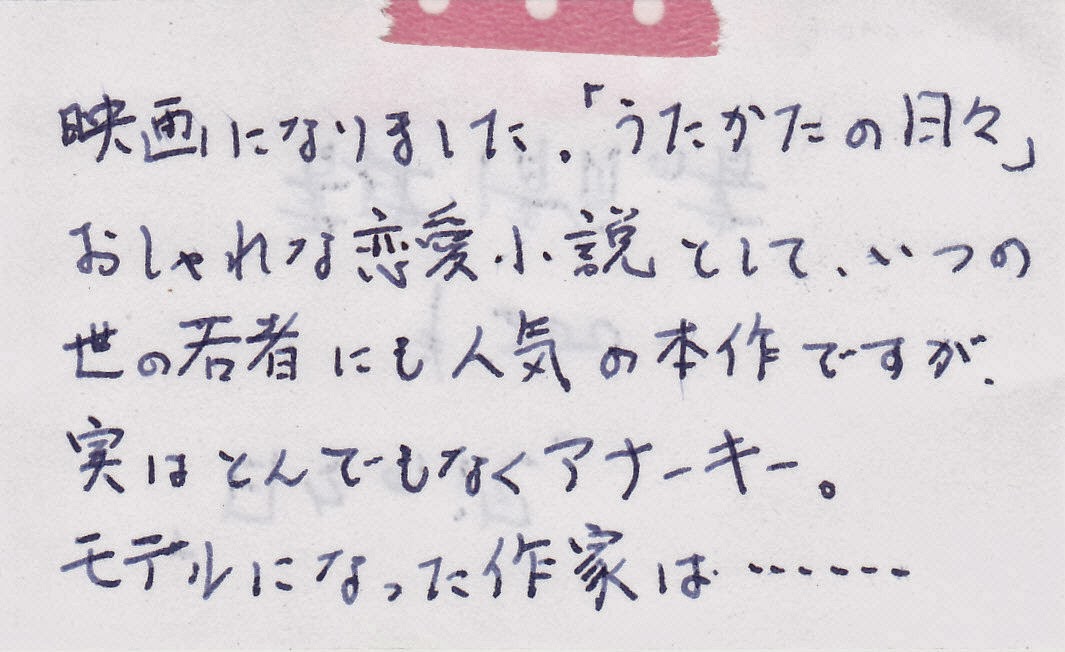 映画になりました。「うたかたの日々」
おしゃれな恋愛小説として、いつの
世の若者にも人気の本作ですが、
実はとんでもなくアナーキー。
モデルになった作家は……